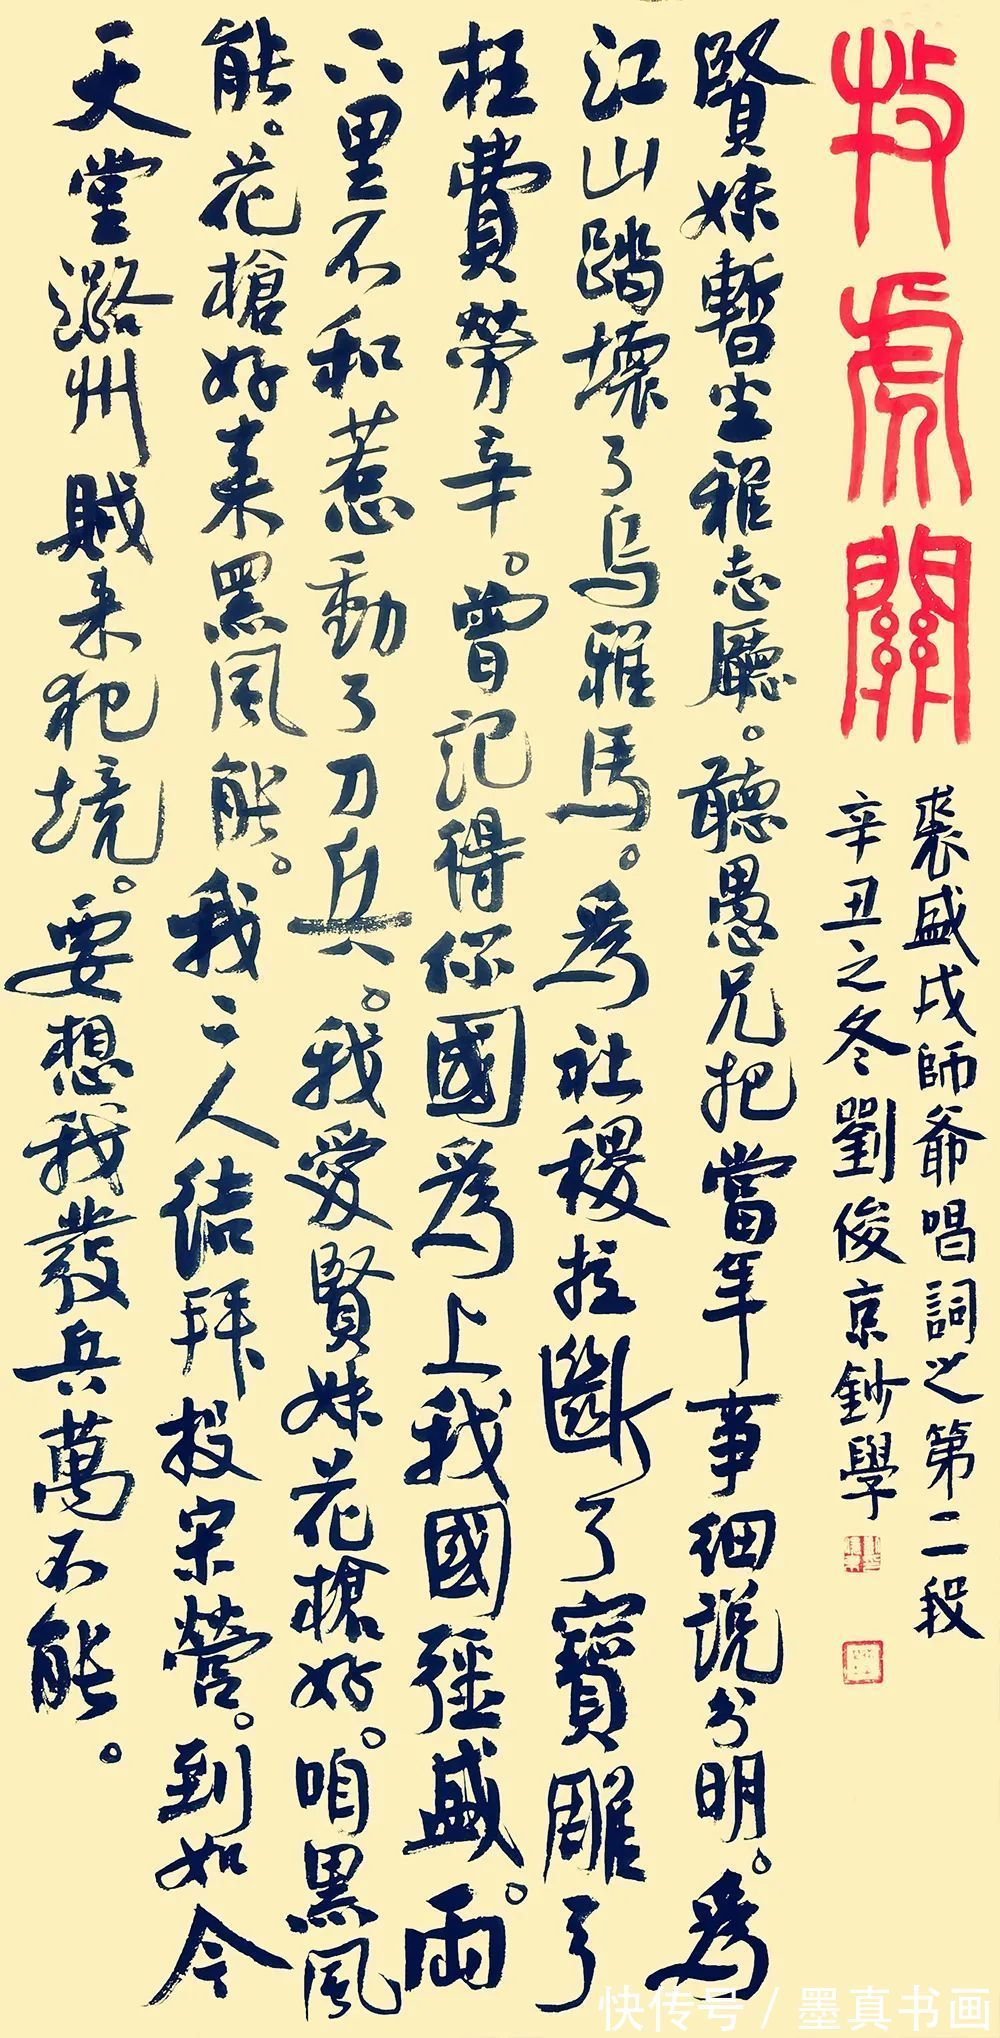 牧虎關
裘盛戎師爺唱詞之第二段
辛丑之冬劉俊京鈔學
賢妹暫坐雅志廳。聽愚兄把當年事細說分明。爲
江山踏壞了烏雅馬。爲社稷拉斷了寶雕弓
枉費勞辛。曾記得你國爲上我國强盛。兩
下里不和惹動了刀兵。我愛賢妹花槍好。咱黑風
能。花槍好來黑風能。我二人結拜投宋營。到如今
天堂潞州賊來犯境。要想我發兵萬不能。
快传号／墨真书画